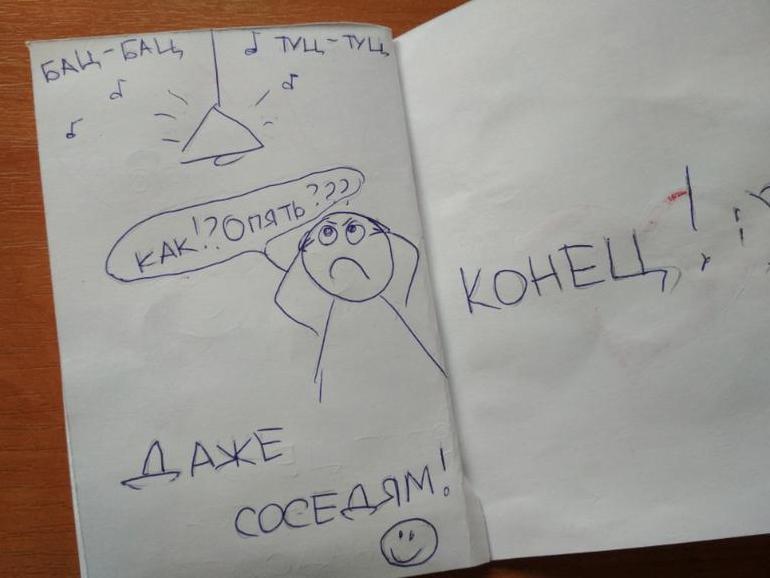 БАЦ-БАЦ
ТУЦ-ТУЦ
КАК!?ОПЯТЬ???
ДАЖЕ
СОСЕДЯМ!
КОНЕЦ!